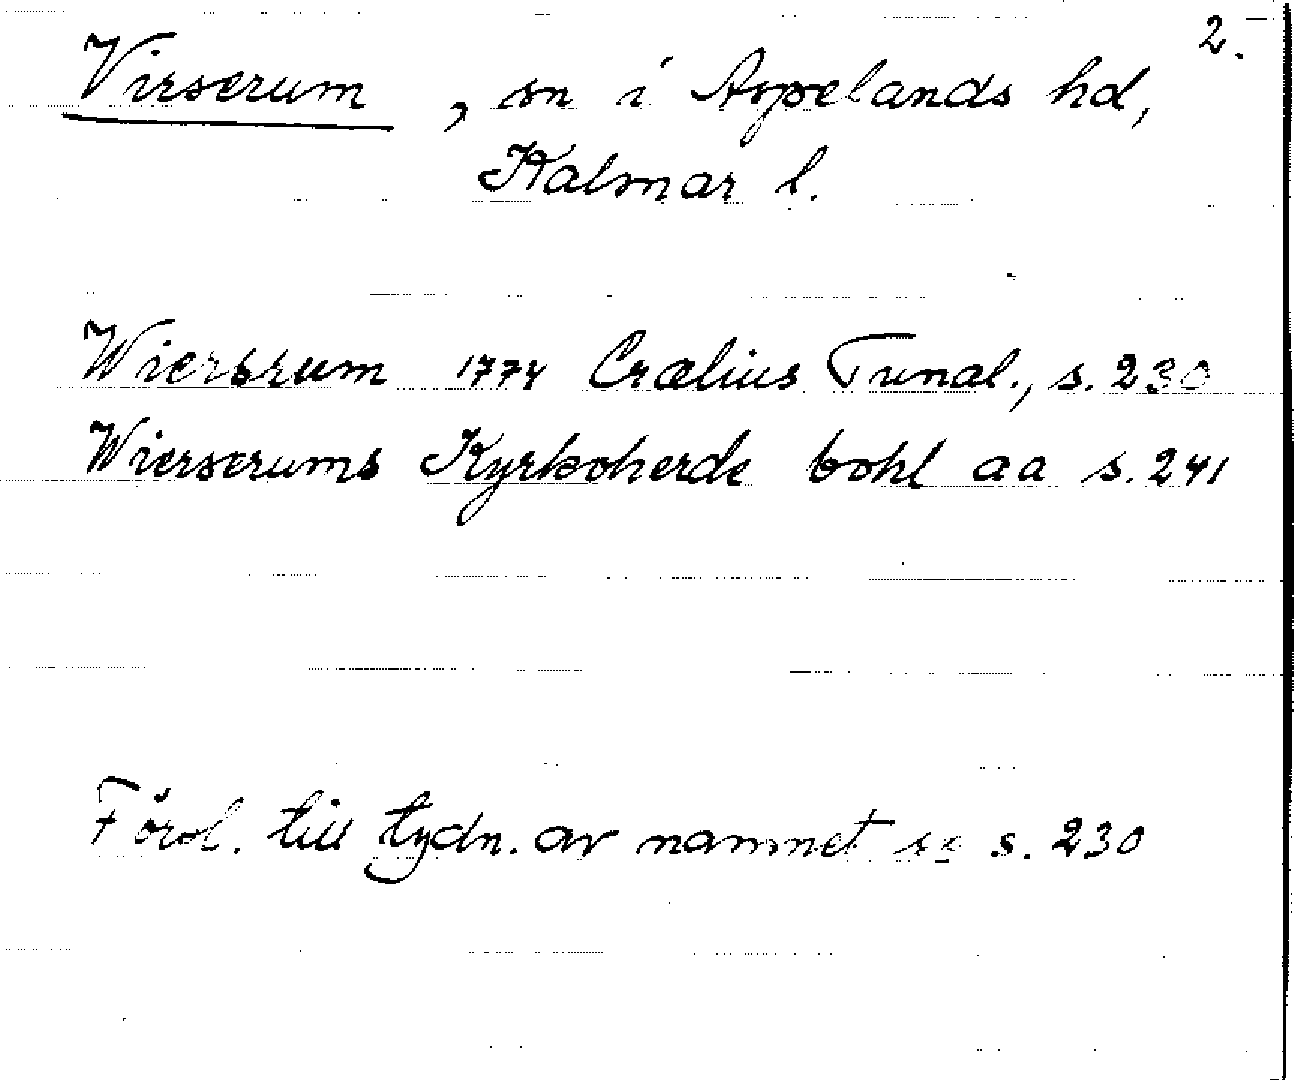 2.
Virserum, sn i Aspelands hd,
Kalmar l.
Wiersrum 1774 Crælius Tunal., s. 230
Wierserums Kyrkoherde bohl aa s. 241
Förol. till tydn. av namnet se s. 230